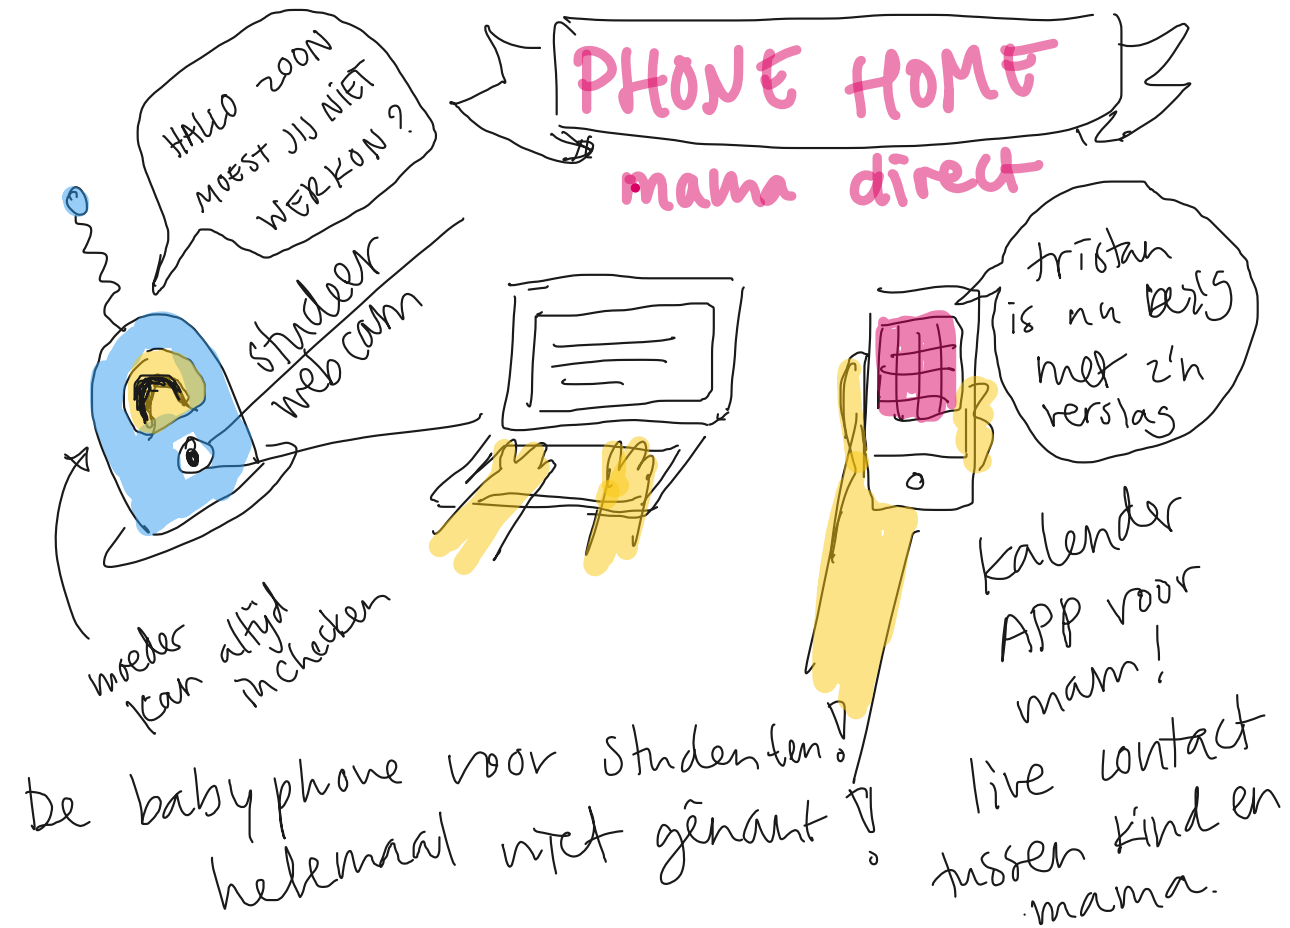 PHONE HOME
mama direct
HALLO ZOON
MOEST JIJ NIET
WERKON?
studeer
webcam
tristan
is nu bezig
met z'n
verslag
moeder
kan altijd
inchecken
kalender
APP voor
mam!
live contact
tussen kind en
mama.
De babyphone voor studenten!
helemaal niet gênant!